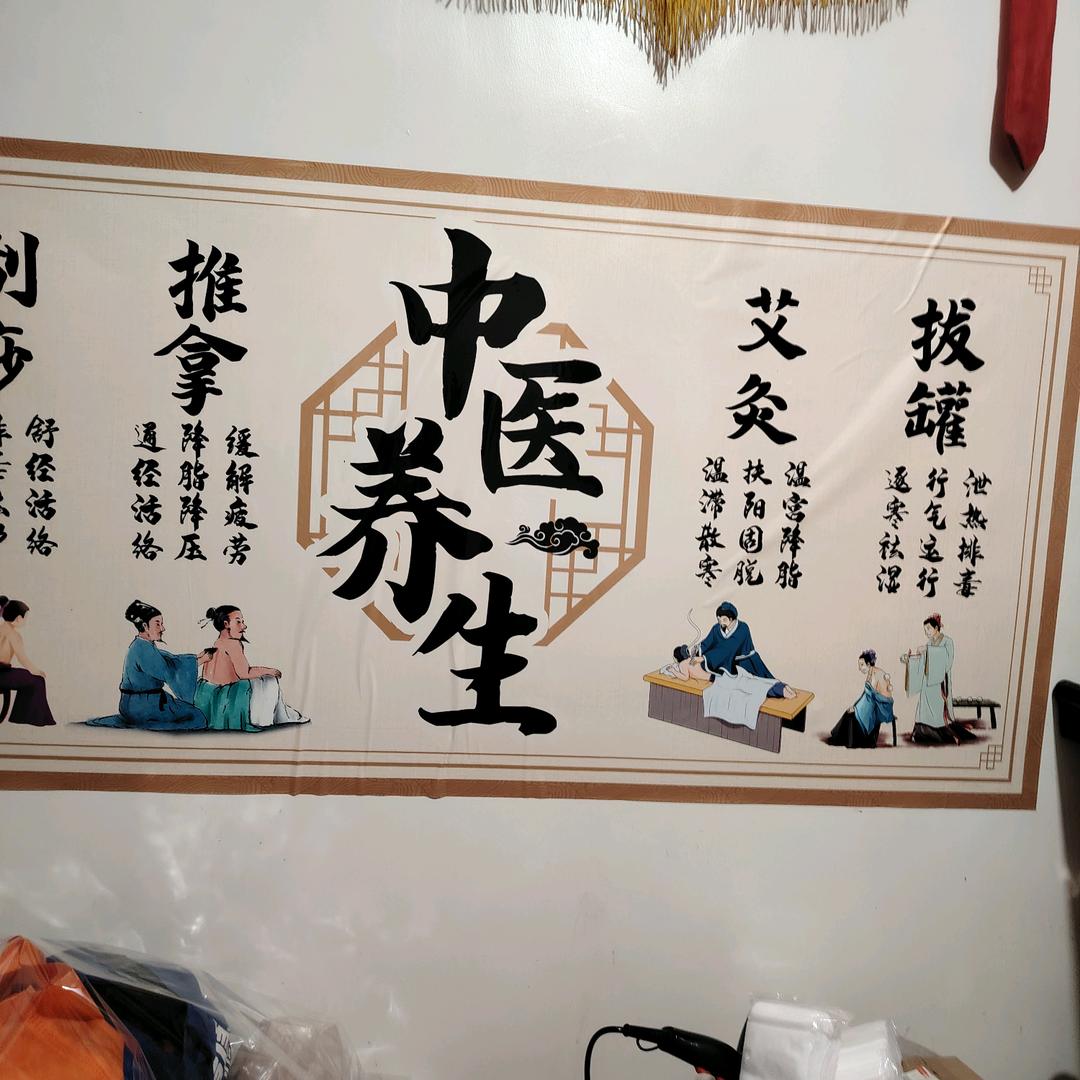 拔罐
泄热排毒
行气运行
逐寒祛湿
艾灸
温宫降脂
扶阳固脱
温滞散寒
中医
养生
推拿
缓解疲劳
降脂降压
通经活络
舒经活络